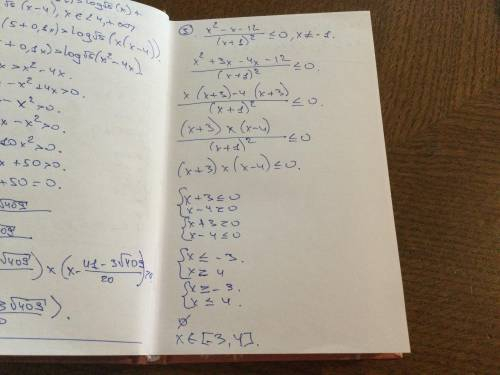 √5 (x-4), x ∈ ⟨4, +∞⟩
(5+0,1x) > log√5 (x(x-4)).
+0,1x) > log√5 (x²-4x)
x > x² - 4x.
- x² + 4x > 0.
x - x² > 0.
10x² > 0.
x + 50 > 0.
+ 50 = 0.
√409
√409
√409 ) × (x - 41 - 3√409 / 20
3√409 ).
③. x² - x - 12 / (x+1)² ≤ 0, x ≠ -1.
x² + 3x - 4x - 12 / (x+1)² ≤ 0.
x (x+3) - 4 (x+3) / (x+1)² ≤ 0.
(x+3) × (x-4) / (x+1)² ≤ 0
(x+3) × (x-4) ≤ 0.
{ x+3 ≤ 0
x-4 ≥ 0
{ x+3 ≥ 0
x-4 ≤ 0
{ x ≤ -3.
x ≥ 4
{ x ≥ -3.
x ≤ 4.
∅
x ∈ [-3, 4].